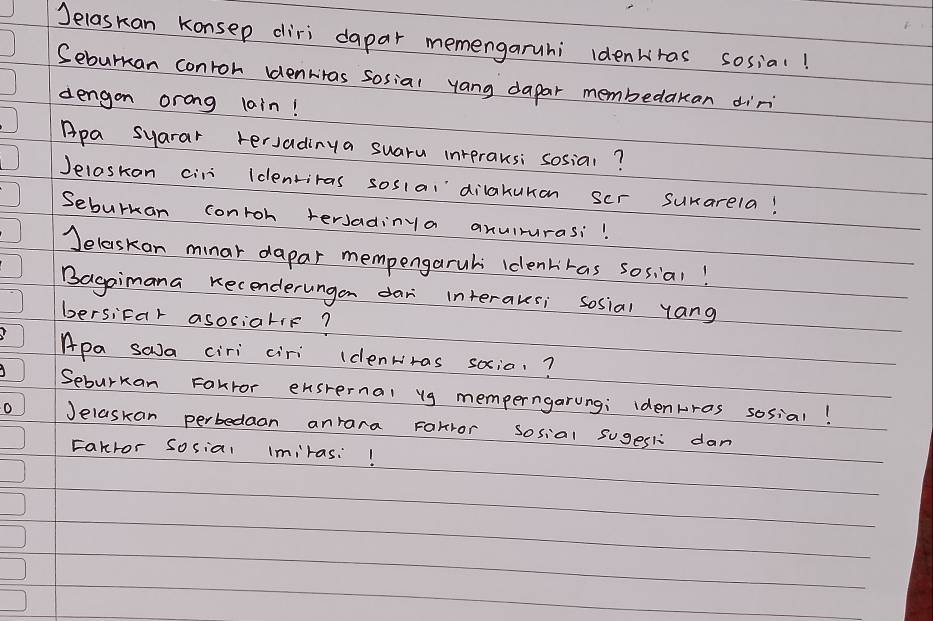 Jelaskan konsep diri dapat memengaruhi identitas sosial!
Seburkan contoh identitas sosial yang dapat membedakan diri
dengan orang lain!
Apa syarat terjadinya suatu interaksi sosial?
Jelaskan ciri identitas sosial dilakukan scr sukarela!
Seburkan contoh terjadinya akulturasi!
Jelaskan minat dapat mempengaruhi identitas sosial!
Bagaimana kecenderungan dari interaksi sosial yang
bersifat asosiatif?
3 Apa saja ciri ciri identitas social?
9 Seburkan faktor eksternal yg memperngarungi identitas sosial!
0 Jelaskan perbedaan antara faktor sosial sugesti dan
faktor sosial imitasi!